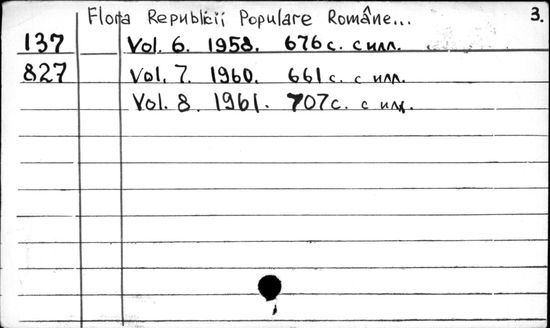 Flora Republicii Populare Române... 3.
137 Vol. 6. 1958. 676 с. с илл.
827 Vol. 7. 1960. 661 с. с илл.
Vol. 8. 1961. 707 с. с илл.